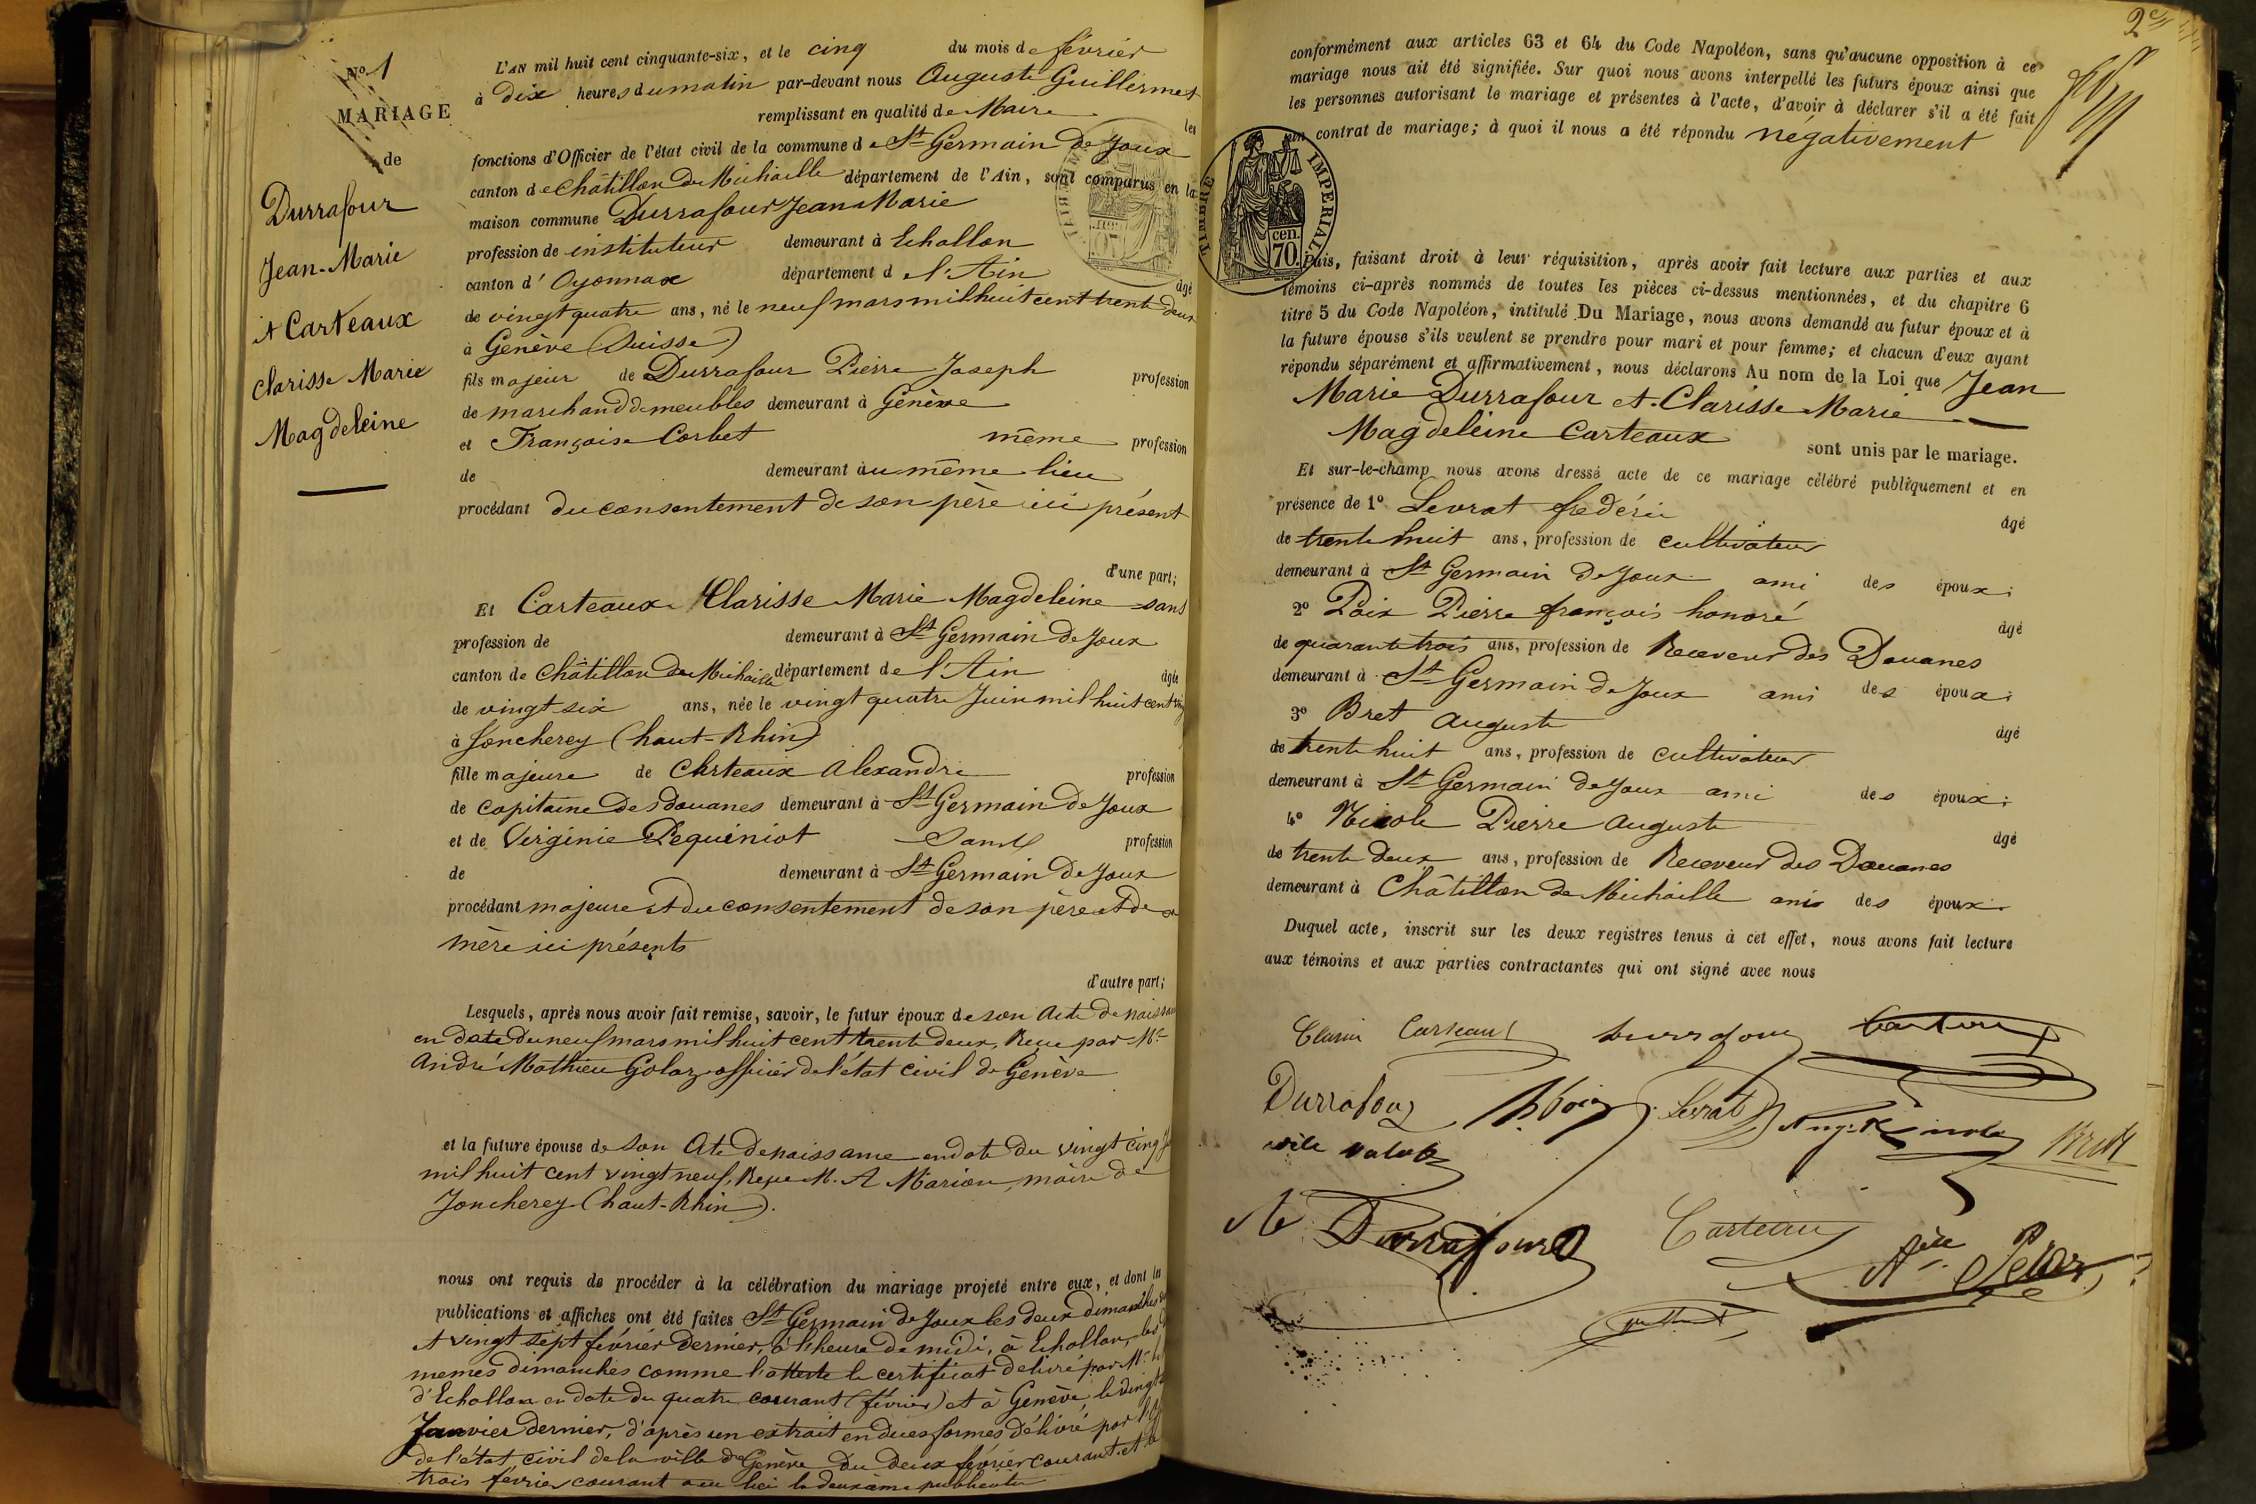 No. 1
MARIAGE
de
Durrafour
Jean-Marie
et Carteaux
Clarisse Marie
Magdeleine
L'AN mil huit cent cinquante-six, et le cinq du mois de février
à dix heures du matin par-devant nous Auguste Guillermet
remplissant en qualité de Maire les
fonctions d'Officier de l'état civil de la commune de St Germain de Joux
canton de Châtillon de Michaille département de l'Ain, sont comparus en la
maison commune Durrafour Jean Marie
profession de instituteur demeurant à Echallon
canton d'Oyonnax département de l'Ain âgé
de vingt quatre ans, né le neuf mars mil huit cent trente deux
à Genève (Suisse)
fils majeur de Durrafour Pierre Joseph profession
de marchand de meubles demeurant à Genève
et Françoise Corbet même profession
de demeurant au même lieu
procédant du consentement de son père ici présent
d'une part;
Et Carteaux Clarisse Marie Magdeleine sans
profession de demeurant à St Germain de Joux
canton de Châtillon de Michaille département de l'Ain âgée
de vingt six ans, née le vingt quatre Juin mil huit cent
à Joncherey (haut-Rhin)
fille majeure de Carteaux Alexandre profession
de capitaine des douanes demeurant à St Germain de Joux
et de Virginie Pequiniot Sans profession
de demeurant à St Germain de Joux
procédant majeure et du consentement de son père et de
mère ici présents
d'autre part;
Lesquels, après nous avoir fait remise, savoir, le futur époux de son Acte de
en date du neuf mars mil huit cent trente deux, Reçu par Mr
André Mathieu Golaz officier de l'état civil de Genève
et la future épouse de son Acte de naissance en date du vingt cinq
mil huit cent vingt neuf, Reçu M. A Marion, maire de
Joncherey (haut-Rhin).
nous ont requis de procéder à la célébration du mariage projeté entre eux, et dont les
publications et affiches ont été faites St Germain de Joux les deux dimanches
et vingt sept février dernier, à l'heure de midi, à Echallon, les
memes dimanches comme l'atteste le certificat delivré par Mr
d'Echallon en date du quatre courant (février) et à Genève, le vingt
Janvier dernier, d'après un extrait en dues formes délivré par
de l'état civil de la ville de Genève du deux février courant et le
trois février courant a eu lieu la deuxième publication
2e
conformément aux articles 63 et 64 du Code Napoléon, sans qu'aucune opposition à ce
mariage nous ait été signifiée. Sur quoi nous avons interpellé les futurs époux ainsi que
les personnes autorisant le mariage et présentes à l'acte, d'avoir à déclarer s'il a été fait
un contrat de mariage; à quoi il nous a été répondu négativement
TIMBRE IMPERIAL
cen.
70.
Puis, faisant droit à leur réquisition, après avoir fait lecture aux parties et aux
témoins ci-après nommés de toutes les pièces ci-dessus mentionnées, et du chapitre 6
titre 5 du Code Napoléon, intitulé Du Mariage, nous avons demandé au futur époux et à
la future épouse s'ils veulent se prendre pour mari et pour femme; et chacun d'eux ayant
répondu séparément et affirmativement, nous déclarons Au nom de la Loi que Jean
Marie Durrafour et Clarisse Marie
Magdeleine Carteaux sont unis par le mariage.
Et sur-le-champ nous avons dressé acte de ce mariage célébré publiquement et en
présence de 1º Levrat fredéric âgé
de trente huit ans, profession de cultivateur
demeurant à St Germain de Joux ami des époux;
2º Poix Pierre françois honoré âgé
de quarante trois ans, profession de Receveur des Douanes
demeurant à St Germain de Joux ami des époux;
3º Bret auguste âgé
de trente huit ans, profession de cultivateur
demeurant à St Germain de Joux ami des époux;
4º Nicole Pierre Auguste âgé
de trente deux ans, profession de Receveur des Douanes
demeurant à Châtillon de Michaille ami des époux.
Duquel acte, inscrit sur les deux registres tenus à cet effet, nous avons fait lecture
aux témoins et aux parties contractantes qui ont signé avec nous
Carteaux
Durrafour Levrat Bret
Durrafour Carteaux